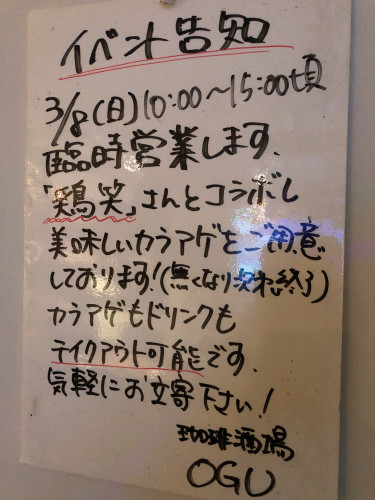 イベント告知
3/8(日)10:00〜15:00頃
臨時営業します.
「鶏笑」さんとコラボし
美味しいカラアゲをご用意
しております!(無くなり次第終了)
カラアゲもドリンクも
テイクアウト可能です.
気軽にお立寄下さい!
珈琲酒場
OGU